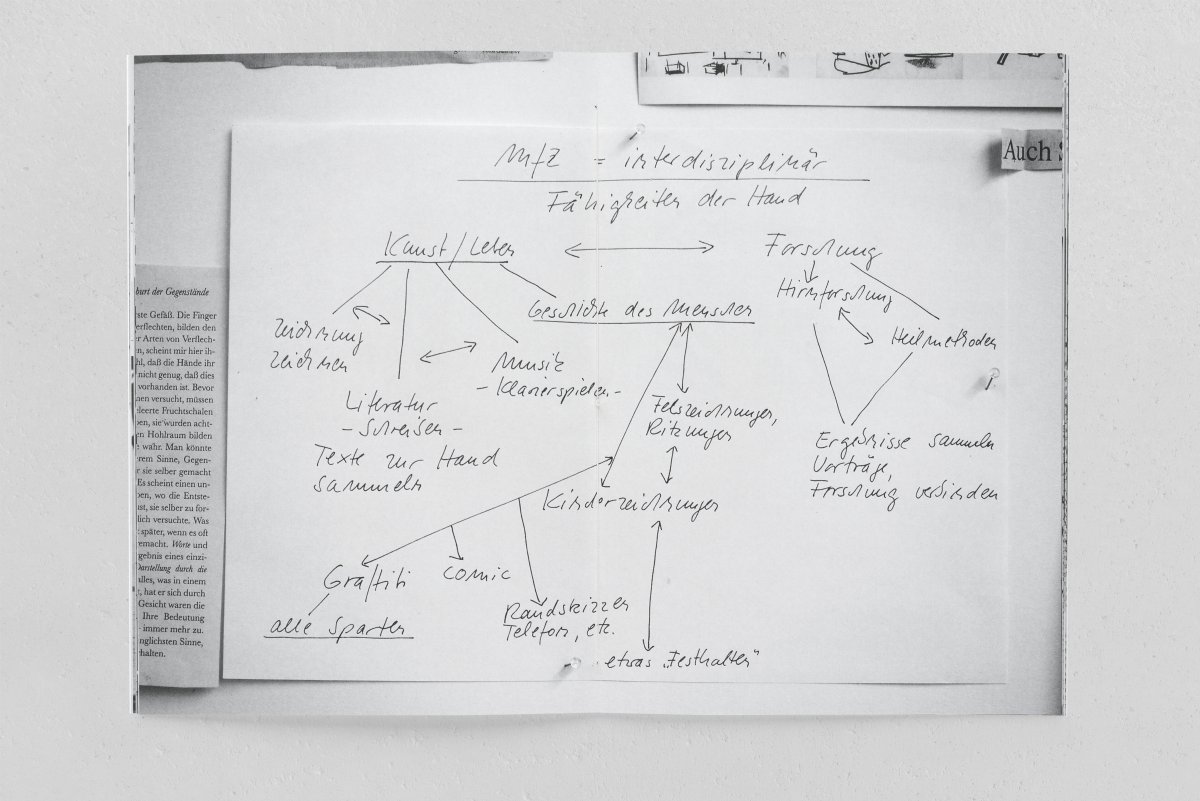 Auch
MfZ = interdisziplinär
Fähigkeiten der Hand
Kunst/Leben
Forschung
Hirnforschung
Heilmethoden
Geschichte des Menschen
Zeichnung
zeichnen
Musik
- Klavierspielen -
Literatur
- Schreiben -
Texte zur Hand
sammeln
Felszeichnungen,
Ritzungen
Ergebnisse sammeln
Vorträge,
Forschung verbinden
Kinderzeichnungen
Graffiti
comic
alle Sparten
Randskizzen
Telefon, etc.
etwas „Festhalten“
burt der Gegenstände
ste Gefäß. Die Finger
erflechten, bilden den
r Arten von Verflech-
n, scheint mir hier ih-
hl, daß die Hände ihr
nicht genug, daß dies
vorhanden ist. Bevor
nen versucht, müssen
leerte Fruchtschalen
ben, sie wurden acht-
en Hohlraum bilden
e wahr. Man könnte
erem Sinne, Gegen-
r sie selber gemacht
Es scheint einen un-
ben, wo die Entste-
ist, sie selber zu for-
lich versuchte. Was
später, wenn es oft
emacht. Worte und
gebnis eines einzi-
Darstellung durch die
alles, was in einem
, hat er sich durch
Gesicht waren die
Ihre Bedeutung
immer mehr zu.
nglichsten Sinne,
rhalten.